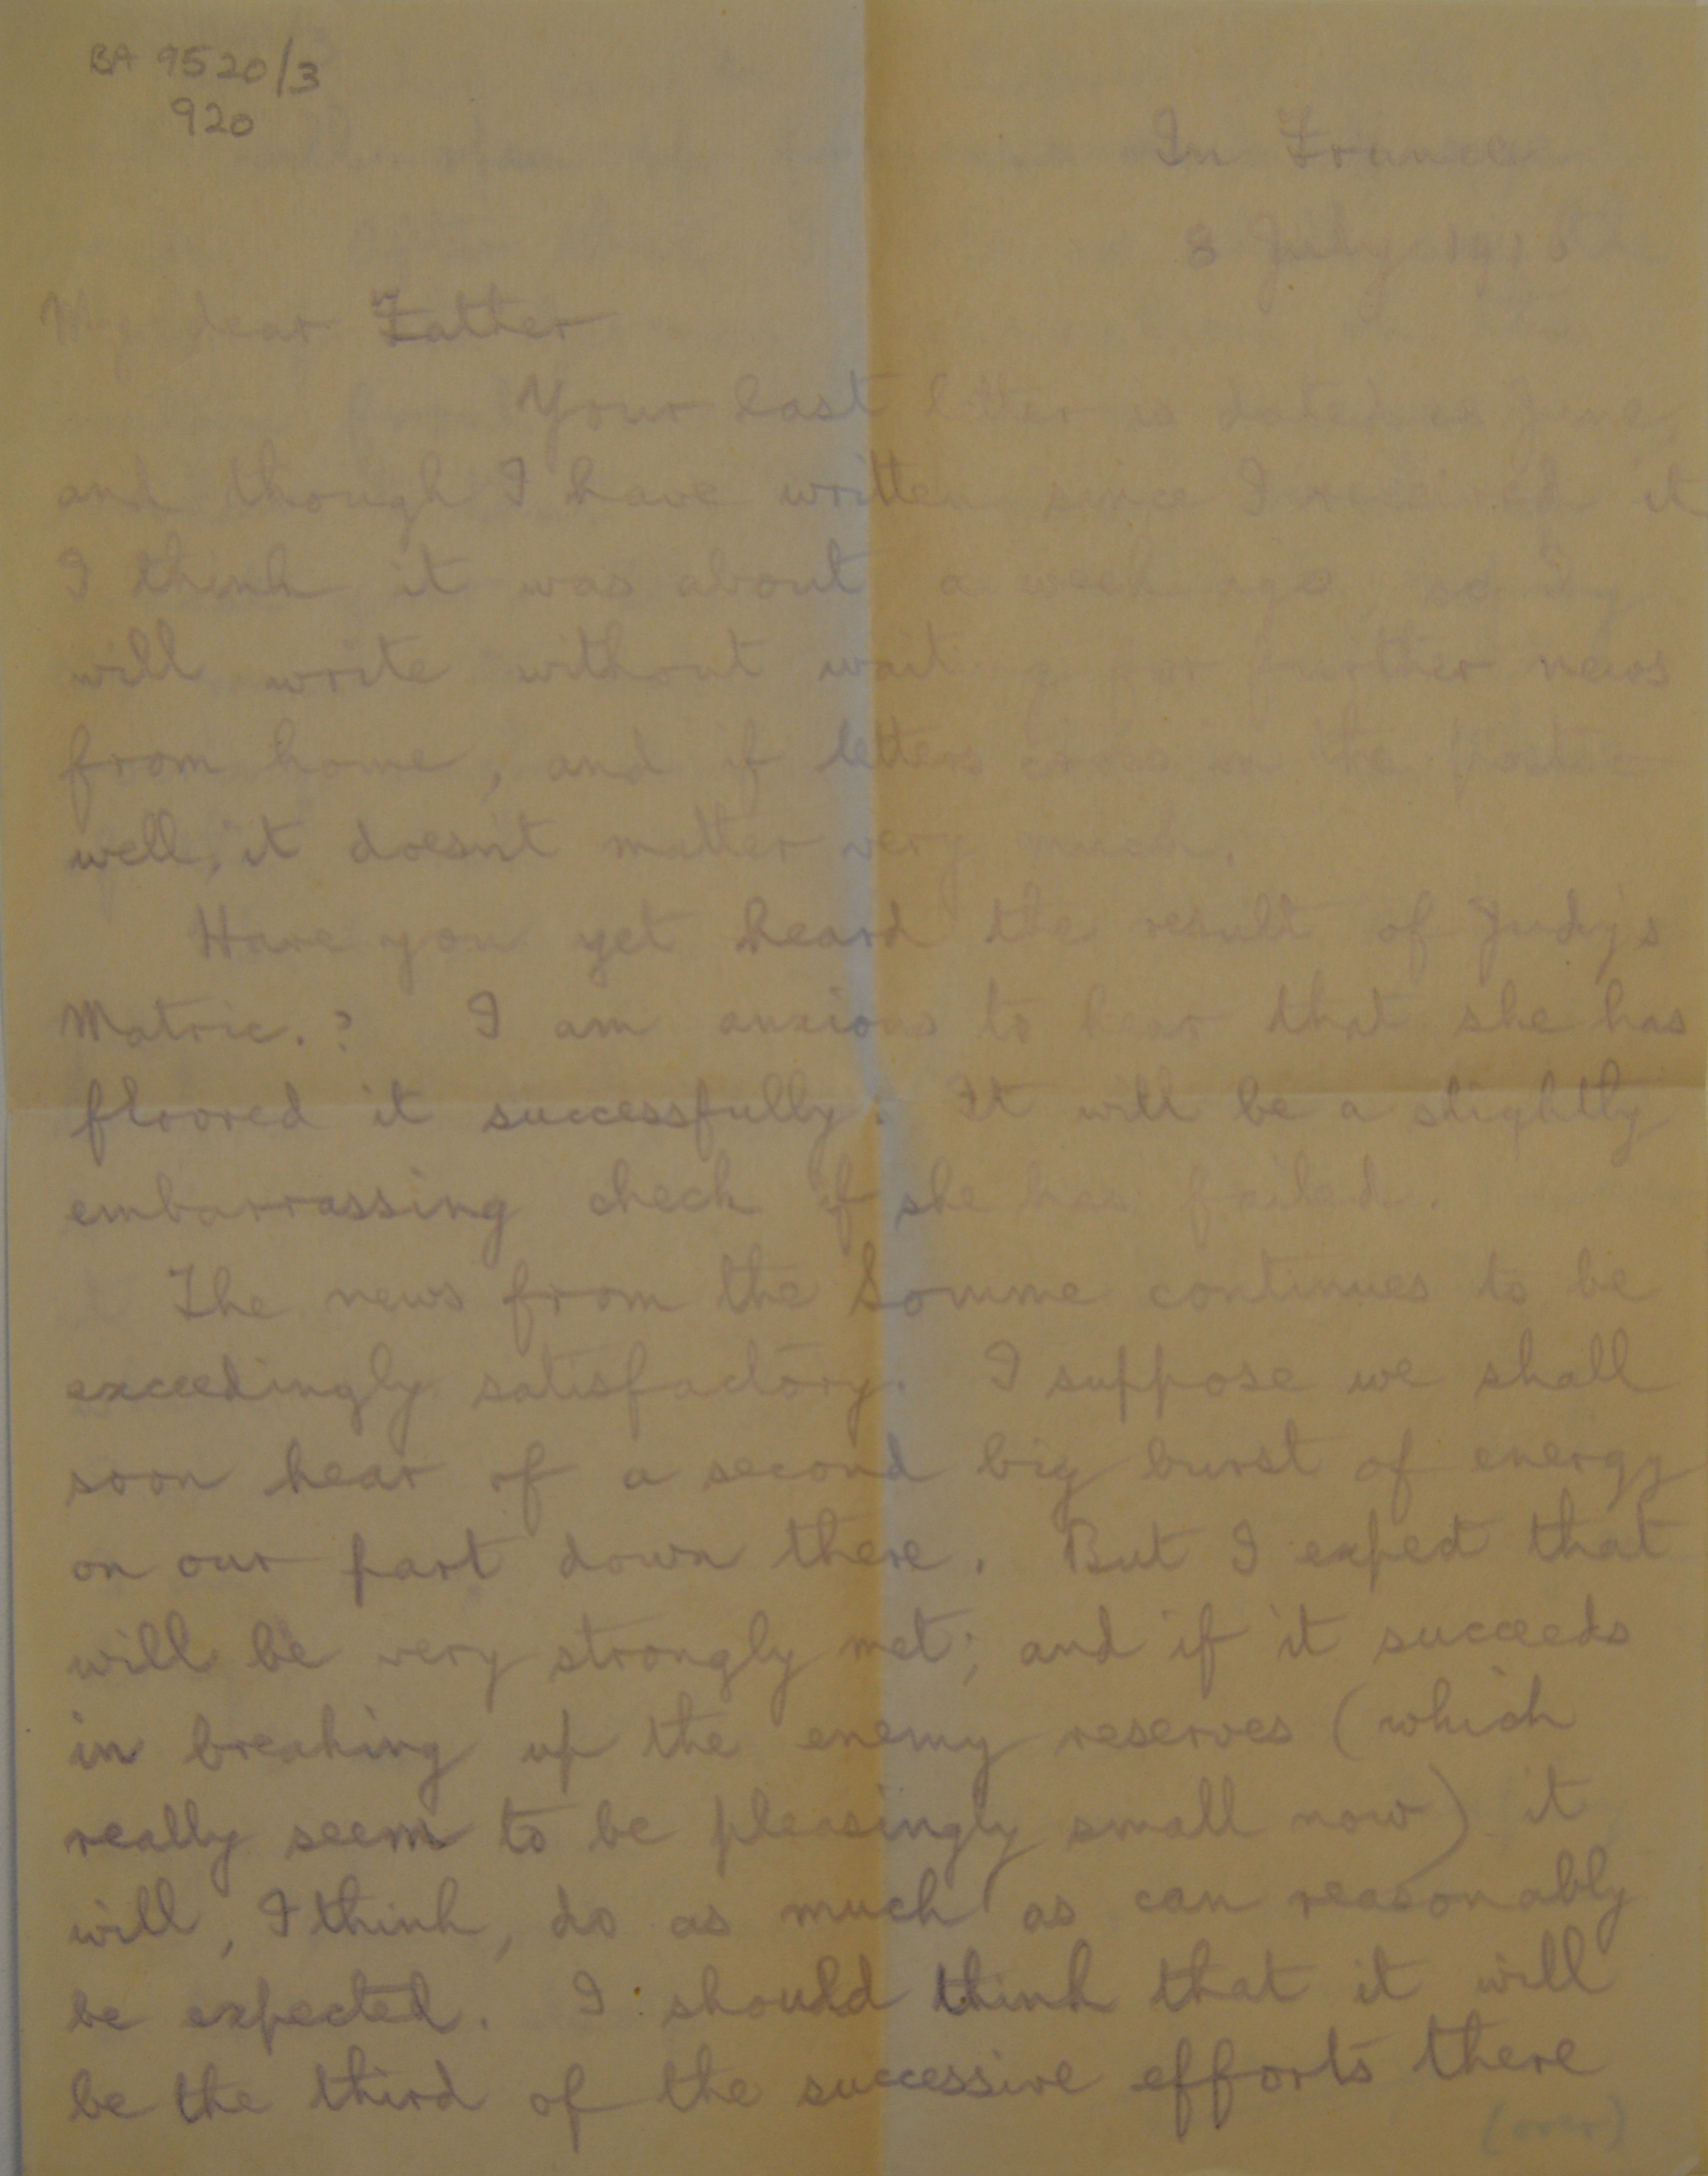 BA 9520/3
920
In France
8 July 1916
My dear Father
Your last letter is dated June,
and though I have written since I received it
I think it was about a week ago, so I
will write without waiting for further news
from home, and if letters cross in the post
well, it doesn't matter very much.
Have you yet heard the result of Judy's
Matric.? I am anxious to hear that she has
floored it successfully. It will be a slightly
embarrassing check if she has failed.
The news from the Somme continues to be
exceedingly satisfactory. I suppose we shall
soon hear of a second big burst of energy
on our part down there. But I expect that
will be very strongly met; and if it succeeds
in breaking up the enemy reserves (which
really seem to be pleasingly small now) it
will, I think, do as much as can reasonably
be expected. I should think that it will
be the third of the successive efforts there
(over)